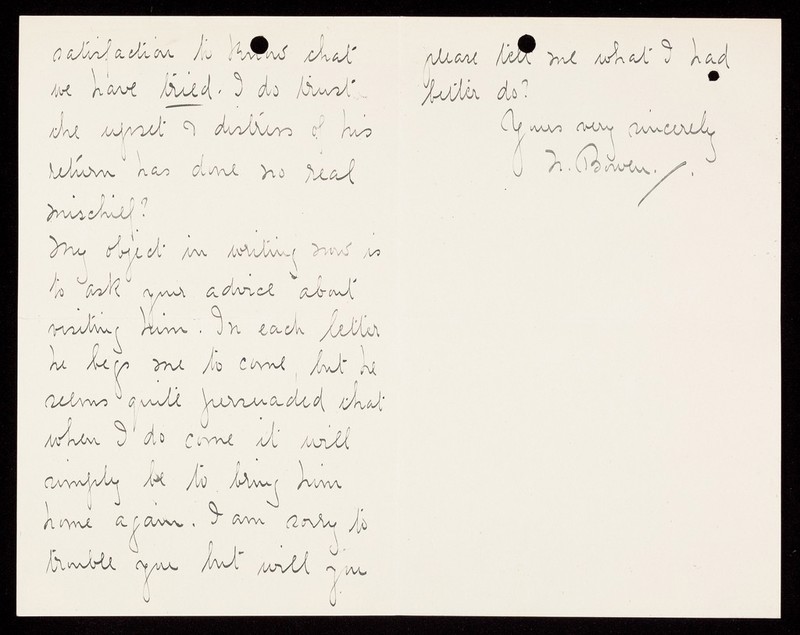 satisfaction to know that
we have tried. I do trust
the upset & distress of his
return has done no real
mischief?
My object in writing now is
to ask your advice about
visiting him. In each letter
he begs me to come, but he
seems quite persuaded that
when I do come it will
simply be to bring him
home again. I am sorry to
trouble you but will you
please tell me what I had
better do?
Yours very sincerely
N. Bowen.